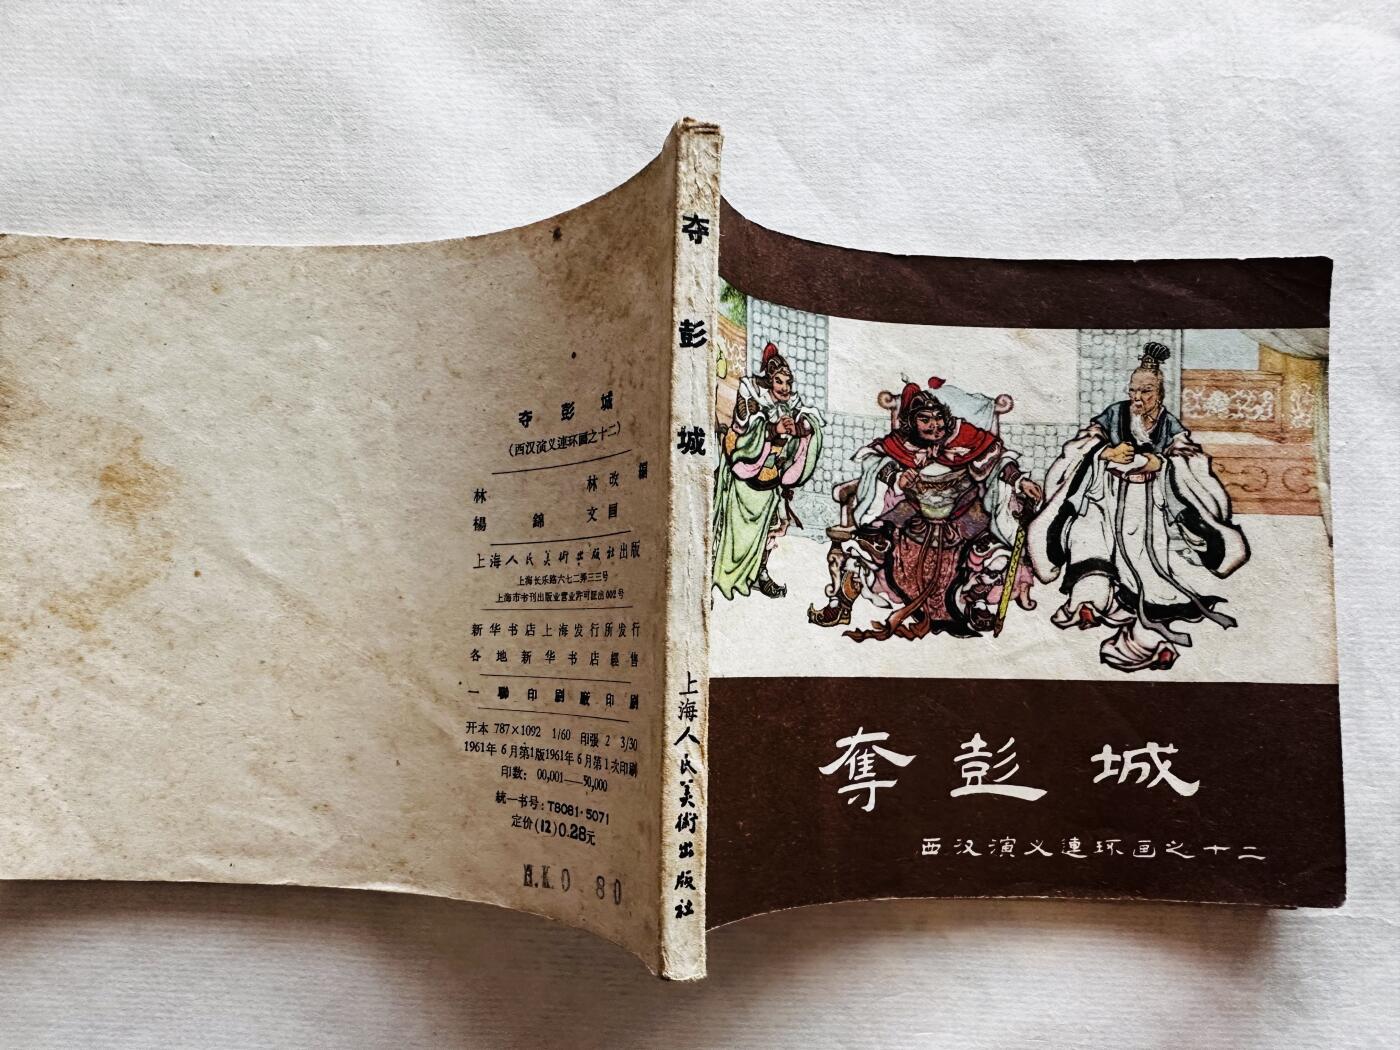 夺彭城
(西汉演义連环画之十二)
林 林 改 編
楊 錦 文 画
上海人民美術出版社出版
上海长乐路六七二弄三三号
上海市书刊出版业营业許可証出002号
新华书店上海发行所发行
各地新华书店經售
一聯印刷厰印刷
开本 787×1092 1/60 印張 2 3/30
1961年6月第1版1961年6月第1次印刷
印数: 00,001—50,000
統一书号: T8081·5071
定价(12)0.28元
H.K.0 80
夺彭城
上海人民美術出版社
奪彭城
西汉演义連环画之十二